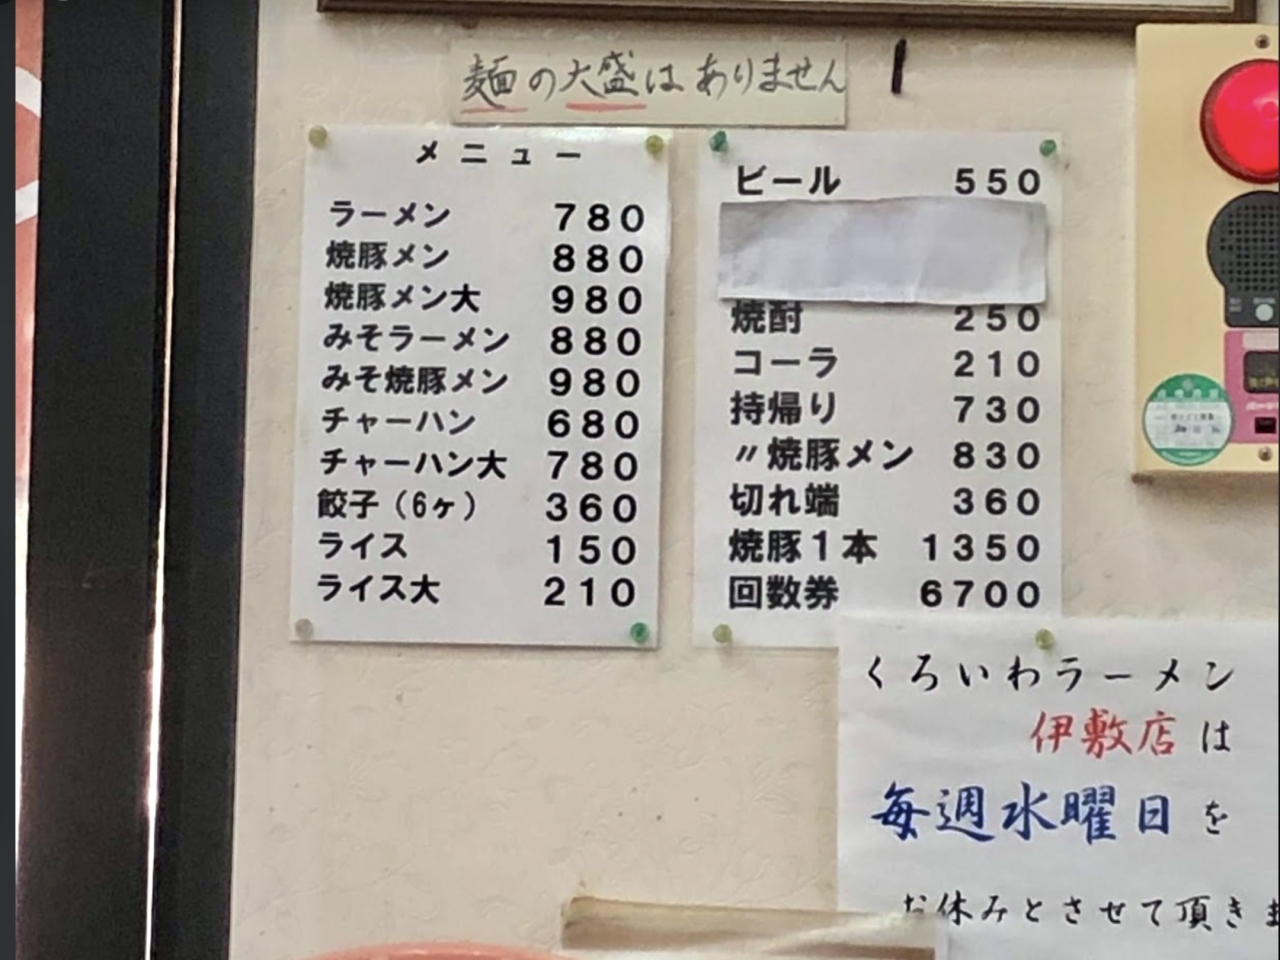 麺の大盛はありません
メニュー
ラーメン 780
焼豚メン 880
焼豚メン大 980
みそラーメン 880
みそ焼豚メン 980
チャーハン 680
チャーハン大 780
餃子（6ヶ） 360
ライス 150
ライス大 210
ビール 550
焼酎 250
コーラ 210
持帰り 730
〃焼豚メン 830
切れ端 360
焼豚1本 1350
回数券 6700
くろいわラーメン
伊敷店は
毎週水曜日を
お休みとさせて頂きま